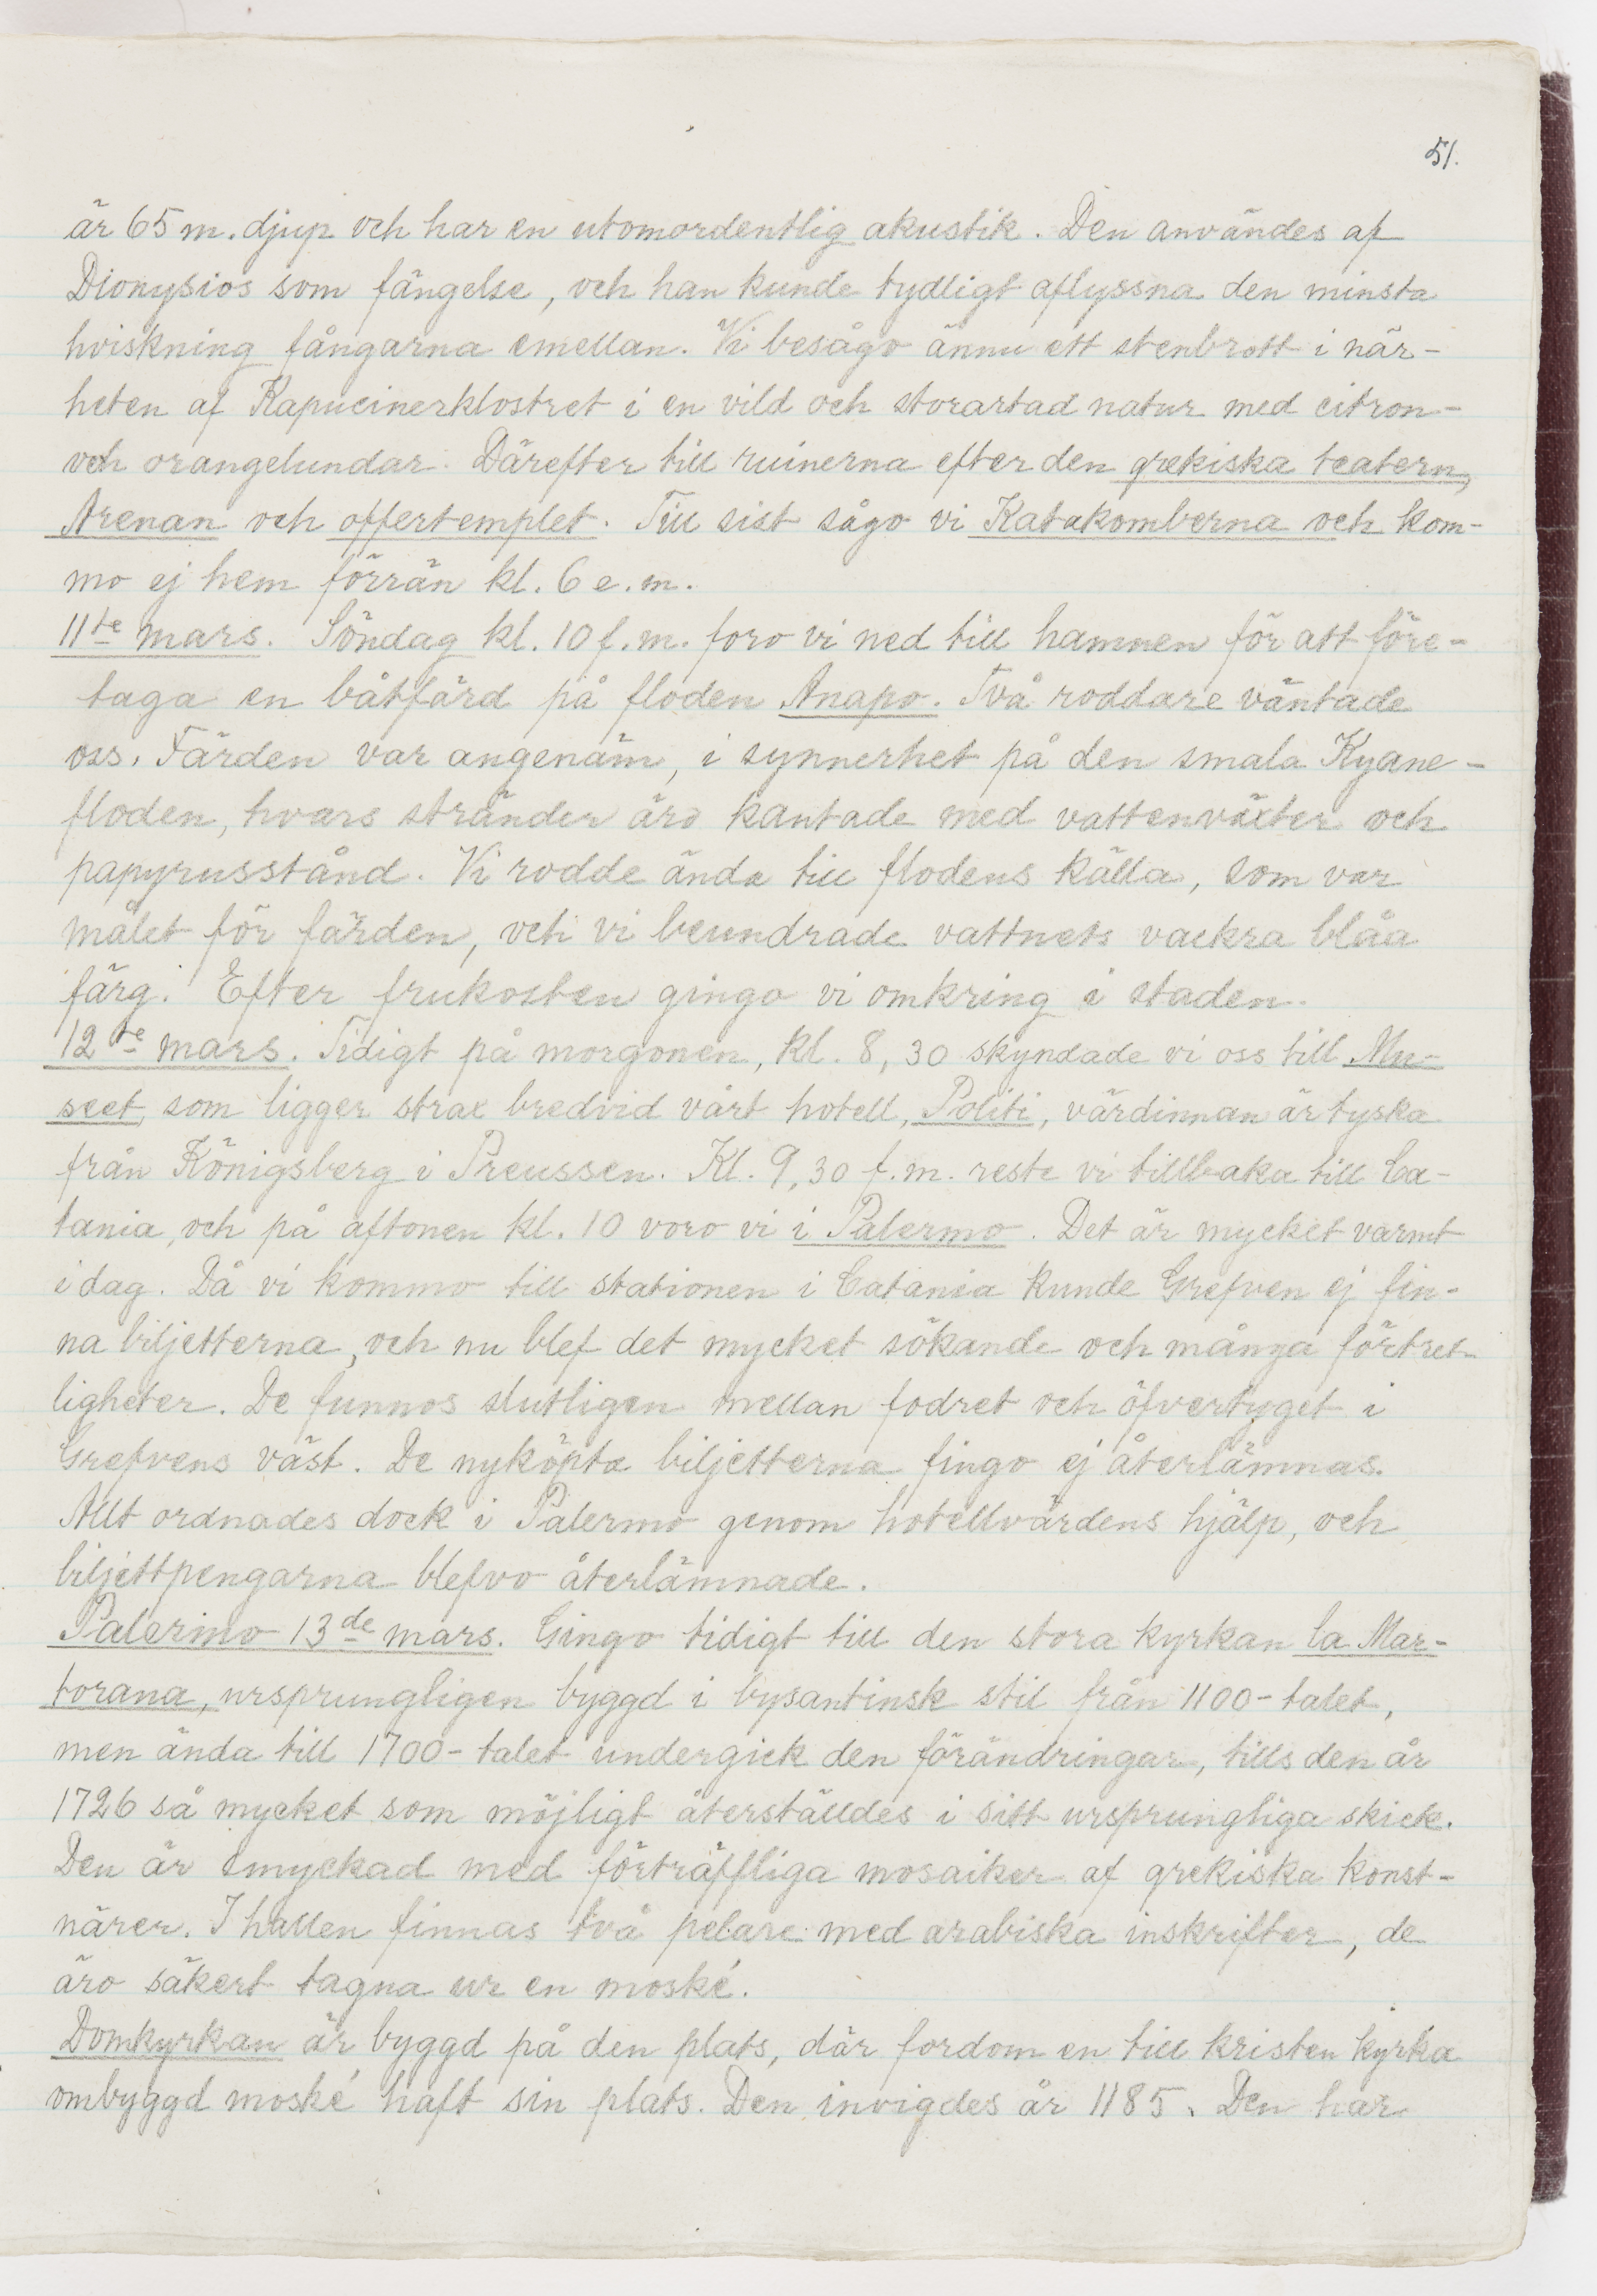 51.
är 65 m. djup och har en utomordentlig akustik. Den användes af
Dionysios som fängelse, och han kunde tydligt aflyssna den minsta
hviskning fångarna emellan. Vi besågo ännu ett stenbrott i när-
heten af Kapucinerklostret i en vild och storartad natur med citron-
och orangelundar. Därefter till ruinerna efter den grekiska teatern,
Arenan och offertemplet. Till sist sågo vi Katakomberna och kom-
mo ej hem förrän kl. 6 e.m.
11te mars. Söndag kl. 10 f.m. foro vi ned till hamnen för att före-
taga en båtfärd på floden Anapo. Två roddare väntade
oss. Färden var angenäm, i synnerhet på den smala Kyane-
floden, hvars stränder äro kantade med vattenväxter och
papyrusstånd. Vi rodde ända till flodens källa, som var
målet för färden, och vi beundrade vattnets vackra blåa
färg. Efter frukosten gingo vi omkring i staden.
12te mars. Tidigt på morgonen, kl. 8,30 skyndade vi oss till Mu-
seet, som ligger strax bredvid vårt hotell, Politi, värdinnan är tyska
från Königsberg i Preussen. Kl. 9,30 f.m. reste vi tillbaka till Ca-
tania, och på aftonen kl. 10 voro vi i Palermo. Det är mycket varmt
i dag. Då vi kommo till stationen i Catania kunde Grefven ej fin-
na biljetterna, och nu blef det mycket sökande och många förtret-
ligheter. De funnos slutligen mellan fodret och öfvertyget i
Grefvens väst. De nyköpta biljetterna fingo ej återlämnas.
Allt ordnades dock i Palermo genom hotellvärdens hjälp, och
biljettpengarna blefvo återlämnade.
Palermo 13de mars. Gingo tidigt till den stora kyrkan la Mar-
torana, ursprungligen byggd i bysantinsk stil från 1100-talet,
men ända till 1700-talet undergick den förändringar, tills den år
1726 så mycket som möjligt återställdes i sitt ursprungliga skick.
Den är smyckad med förträffliga mosaiker af grekiska konst-
närer. I hallen finnas två pelare med arabiska inskrifter, de
äro säkert tagna ur en moské.
Domkyrkan är byggd på den plats, där fordom en till kristen kyrka
ombyggd moské haft sin plats. Den invigdes år 1185. Den har